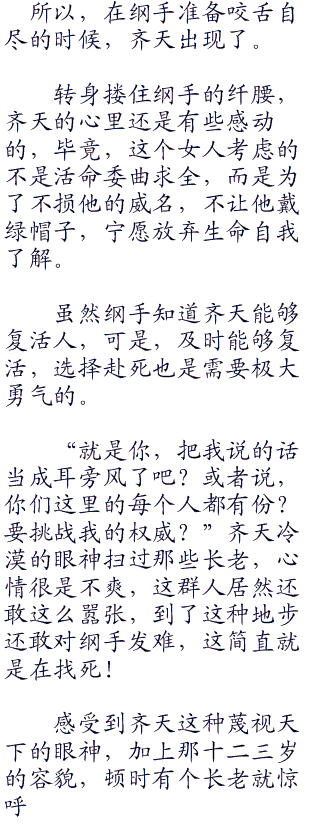 所以，在纲手准备咬舌自
尽的时候，齐天出现了。
转身搂住纲手的纤腰，
齐天的心里还是有些感动
的，毕竟，这个女人考虑的
不是活命委曲求全，而是为
了不损他的威名，不让他戴
绿帽子，宁愿放弃生命自我
了解。
虽然纲手知道齐天能够
复活人，可是，及时能够复
活，选择赴死也是需要极大
勇气的。
“就是你，把我说的话
当成耳旁风了吧？或者说，
你们这里的每个人都有份？
要挑战我的权威？”齐天冷
漠的眼神扫过那些长老，心
情很是不爽，这群人居然还
敢这么嚣张，到了这种地步
还敢对纲手发难，这简直就
是在找死！
感受到齐天这种蔑视天
下的眼神，加上那十二三岁
的容貌，顿时有个长老就惊
呼